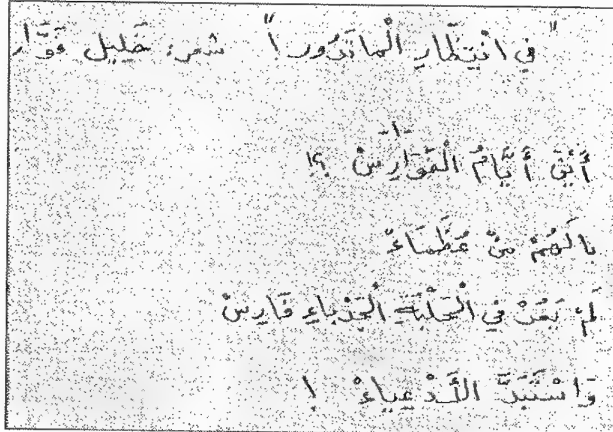 "في انْتِظَارِ الْمَاتَدُورا" شعر: خَلِيل قَوَّار
-١-
أَيْنَ أَيَّامُ الْفَوَارِسْ ؟!
يالَهُمْ مِنْ عُظَمَاءْ
لَمْ يَعُدْ في الْحَلْبَةِ الْجَدْباءِ فَارِسْ
وَاسْتَبَدَّ الأَدْعِياءْ !